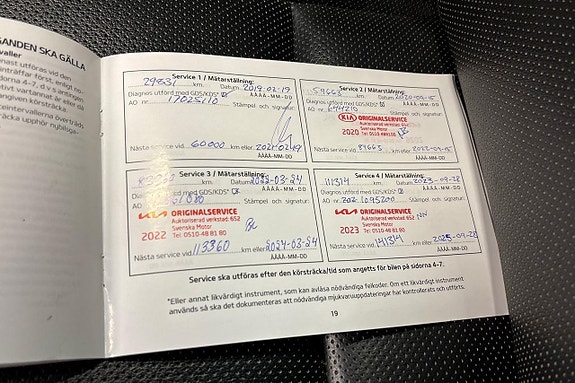 GANDEN SKA GÄLLA
Service 1 / Mätarställning:
29831 km. Datum 2019-02-19
ÅÅÅÅ-MM-DD
Diagnos utförd med GDS/KDS*
AO nr. 17025110 Stämpel och signatur:
Nästa service vid 60000 km eller 2021-02-19
ÅÅÅÅ-MM-DD
Service 2 / Mätarställning:
59663 km. Datum 2020-09-15
ÅÅÅÅ-MM-DD
Diagnos utförd med GDS/KDS*
AO nr. Stämpel och signatur:
KIA ORIGINALSERVICE
Auktoriserad verkstad: 652
Svenska Motor
2020 Tel: 0510-48 81 80
Nästa service vid 89663 km eller 2022-09-15
ÅÅÅÅ-MM-DD
Service 3 / Mätarställning:
km. Datum 2022-03-24
ÅÅÅÅ-MM-DD
Diagnos utförd med GDS/KDS*
AO Stämpel och signatur:
KIA ORIGINALSERVICE
Auktoriserad verkstad: 652
Svenska Motor
2022 Tel: 0510-48 81 80
Nästa service vid 113360 km eller 2024-03-24
ÅÅÅÅ-MM-DD
Service 4 / Mätarställning:
111314 km. Datum 2023-09-28
ÅÅÅÅ-MM-DD
Diagnos utförd med GDS/KDS*
AO nr. Stämpel och signatur:
KIA ORIGINALSERVICE
Auktoriserad verkstad: 652
Svenska Motor
2023 Tel: 0510-48 81 80
Nästa service vid 141314 km eller 2025-09-28
ÅÅÅÅ-MM-DD
Service ska utföras efter den körsträcka/tid som angetts för bilen på sidorna 4-7.
*Eller annat likvärdigt instrument, som kan avläsa nödvändiga felkoder. Om ett likvärdigt instrument
används så ska det dokumenteras att nödvändiga mjukvaruuppdateringar har kontrollerats och utförts.
19